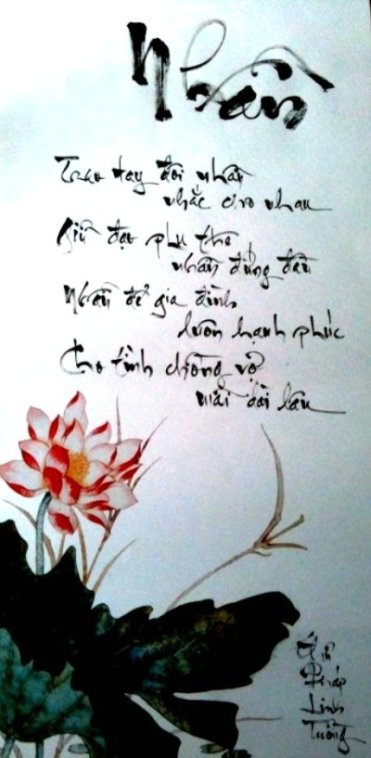 Nhẫn
Trao tay đôi nhẫn
nhắc cho nhau
Giữ đạo phu thê
nhẫn đứng đầu
Nhẫn để gia đình
luôn hạnh phúc
Cho tình chồng vợ
mãi dài lâu
Pháp
Linh
Tường